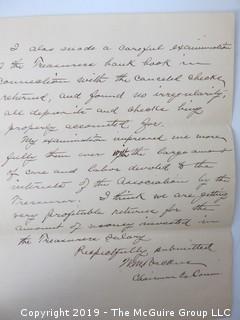 I also made a careful examination
of the Treasurers bank book in
connection with the canceled checks
returned, and found no irregularity,
all deposits and checks being
properly accounted for.
My examination impressed me more
fully than ever with the large amount
of care and labor devoted to the
interests of the Association by the
Treasurer. I think we are getting
very profitable returns for the
amount of money invested in
the Treasurers salary
Respectfully submitted
Chairman
Copyright 2019 - The McGuire Group LLC